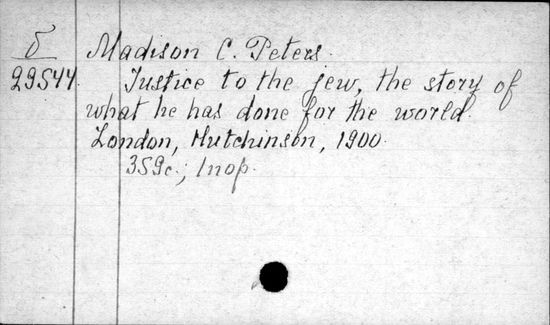 δ Madison C. Peters.
29544 Justice to the jew, the story of
what he has done for the world.
London, Hutchinson, 1900.
359c.; 1 пор.